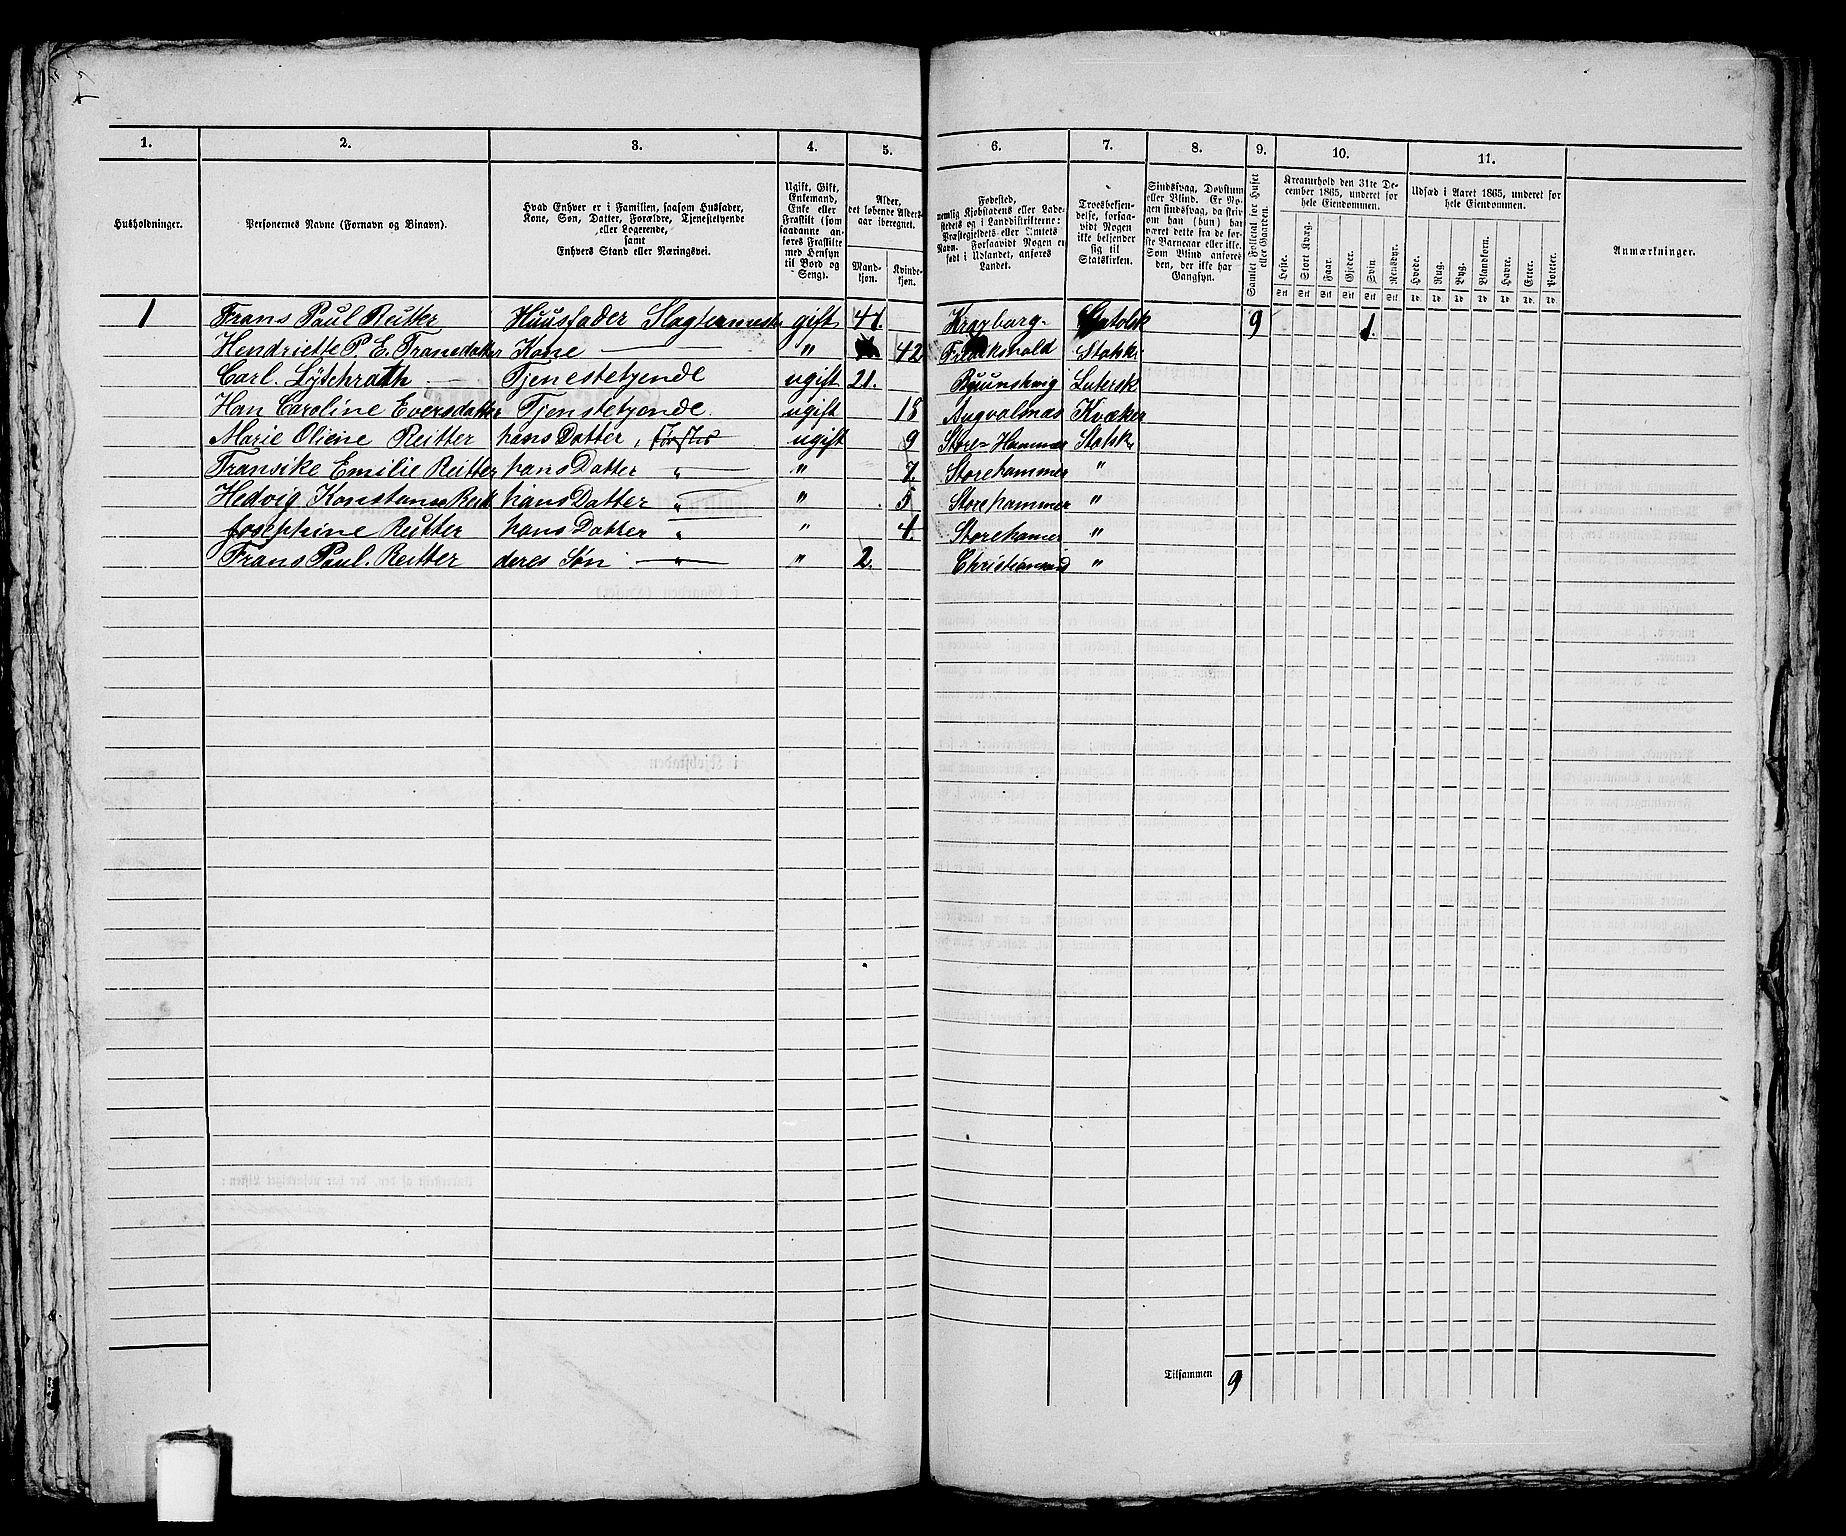 1. 2. 3. 4. 5. 6. 7. 8. 9. 10. 11.
Husholdninger.
Personernes Navne (Fornavn og Binavn).
Hvad Enhver er i Familien, saasom Husfader,
Kone, Søn, Datter, Forældre, Tjenestetyende
eller Logerende,
samt
Enhvers Stand eller Næringsvei.
Ugift, Gift,
Enkemand,
Enke eller
Fraskilt (som
saadanne an-
føres Fraskilte
med Hensyn
til Bord og
Seng).
Alder,
det løbende Alders-
aar iberegnet.
Mand-
kjøn.
Kvinde-
kjøn.
Fødested,
nemlig Kjøbstadens eller Lade-
stedets og i Landdistrikterne:
Præstegjeldets eller Amtets
Navn. Forsaavidt Nogen er
født i Udlandet, anføres
Landet.
Troesbekjen-
delse, forsaa-
vidt Nogen
ikke bekjender
sig til
Statskirken.
Sindssvag, Døvstum
eller Blind. Er No-
gen sindssvag, da skriv
om han (hun) har
været dette fra de før-
ste Barneaar eller ikke.
Som Blind anføres
den, der ikke har
Gangsyn.
Samlet Folketal for Huset
eller Gaarden.
Kreaturhold den 31te De-
cember 1865, underet for
hele Eiendommen.
Heste. Stort Kvæg. Faar. Gjeder. Sviin. Rensdyr.
Udsæd i Aaret 1865, underet for
hele Eiendommen.
Hvede. Rug. Byg. Blandkorn. Havre. Erter. Poteter.
Anmærkninger.
1 Frans Paul Reitter Huusfader Slagtermester gift 41. Katolsk 9 1.
Hendriette P. E. Fransdatter Kone " 42 Statsk
Carl. Tjenestetyende ugift 21. Lutersk
Han Caroline Eversdatter Tjenstetyende. ugift 18 Kvæker
Marie Oliene Reitter hans Datter, ugift 9 Store-Hammer Statsk
Fransike Emilie Reitter hans Datter " " 7. Storehammer "
Hedvig hans Datter " " 5 Storehammer "
Josephine Reitter hans Datter " " 4. Storehamer "
Frans Paul. Reitter deres Søn " " 2. "
Tilsammen 9